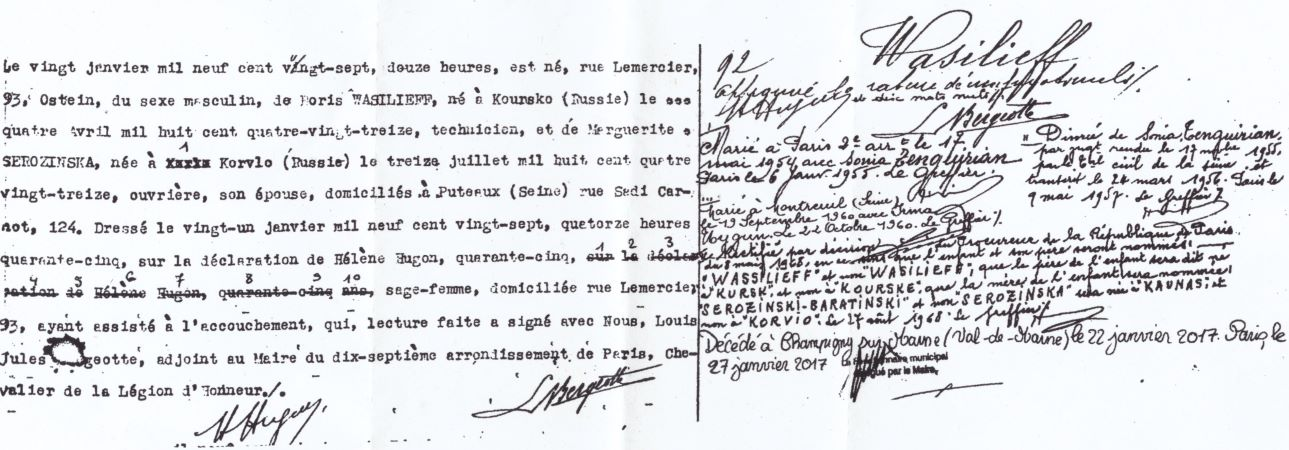 Le vingt janvier mil neuf cent vingt-sept, douze heures, est né, rue Lemercier,
93, Ostein, du sexe masculin, de Boris WASILIEFF, né à Koursko (Russie) le
quatre Avril mil huit cent quatre-vingt-treize, technicien, et de Marguerite
SEROZINSKA, née à Korvlo (Russie) le treize juillet mil huit cent quatre
vingt-treize, ouvrière, son épouse, domiciliés à Puteaux (Seine) rue Sadi Car-
not, 124. Dressé le vingt-un janvier mil neuf cent vingt-sept, quatorze heures
quarante-cinq, sur la déclaration de Hélène Hugon, quarante-cinq, sur la décla-
ration de Hélène Hugon, quarante-cinq ans, sage-femme, domiciliée rue Lemercier
93, ayant assisté à l'accouchement, qui, lecture faite a signé avec Nous, Louis
Jules geotte, adjoint au Maire du dix-septième arrondissement de Paris, Che-
valier de la Légion d'Honneur./.
H Hugon
L Bergeotte
Wasilieff
92
approuvé la rature de
et dix mots nuls
H Hugon
L Bergeotte
Marié à Paris 2e arrt le 17
mai 1954 avec Sonia Tenquirian
Paris le 6 janv. 1955. Le Greffier.
Divorcé de Sonia Tenquirian,
par jugt rendu le 17 1955,
par le civil de la Seine, et
transcrit le 24 mars 1956. Paris le
9 mai 1957. Le Greffier
Marié à Montreuil (Seine)
le 19 Septembre 1960 avec Irma
Le 22 Octobre 1960. Le Greffier/.
Rectifié par décision du Procureur de la République de Paris
du 8 mai 1968, en ce sens que l'enfant et son père seront nommés:
"WASSILIEFF" et non "WASILIEFF", que le père de l'enfant sera dit né
à "KURSK" et non à "KOURSKE", que la mère de l'enfant sera nommée:
"SEROZINSKI-BARATINSKI" et non "SEROZINSKA" née à "KAUNAS" et
non à "KORVIO". Le 27 août 1968. Le Greffier/.
Décédé à Champigny sur Marne (Val-de-Marne) le 22 janvier 2017. Paris, le
27 janvier 2017
municipal
par le Maire,